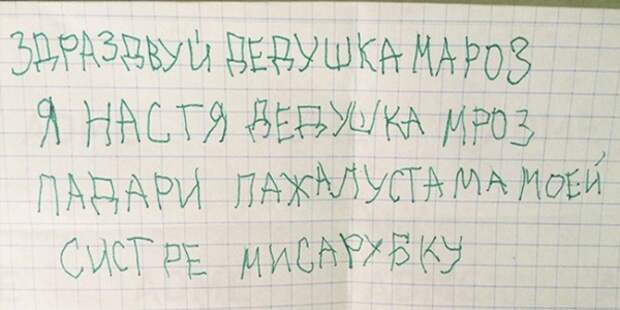 ЗДРАЗДВУЙ ДЕДУШКА МАРОЗ
Я НАСТЯ ДЕДУШКА МРОЗ
ПАДАРИ ПАЖАЛУСТА МАМОЕЙ
СИСТРЕ МИСАРУБКУ